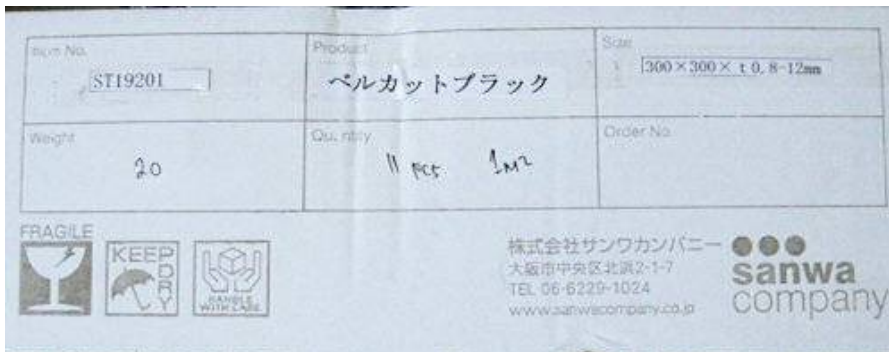 Item No.
ST19201
Product
ベルカットブラック
Size
300×300× t 0.8-12mm
Weight
20
Quantity
11 PCS 1M2
Order No.
FRAGILE
KEEP DRY
HANDLE WITH CARE
株式会社サンワカンパニー
大阪市中央区北浜2-1-7
TEL 06-6229-1024
www.sanwacompany.co.jp
sanwa
company